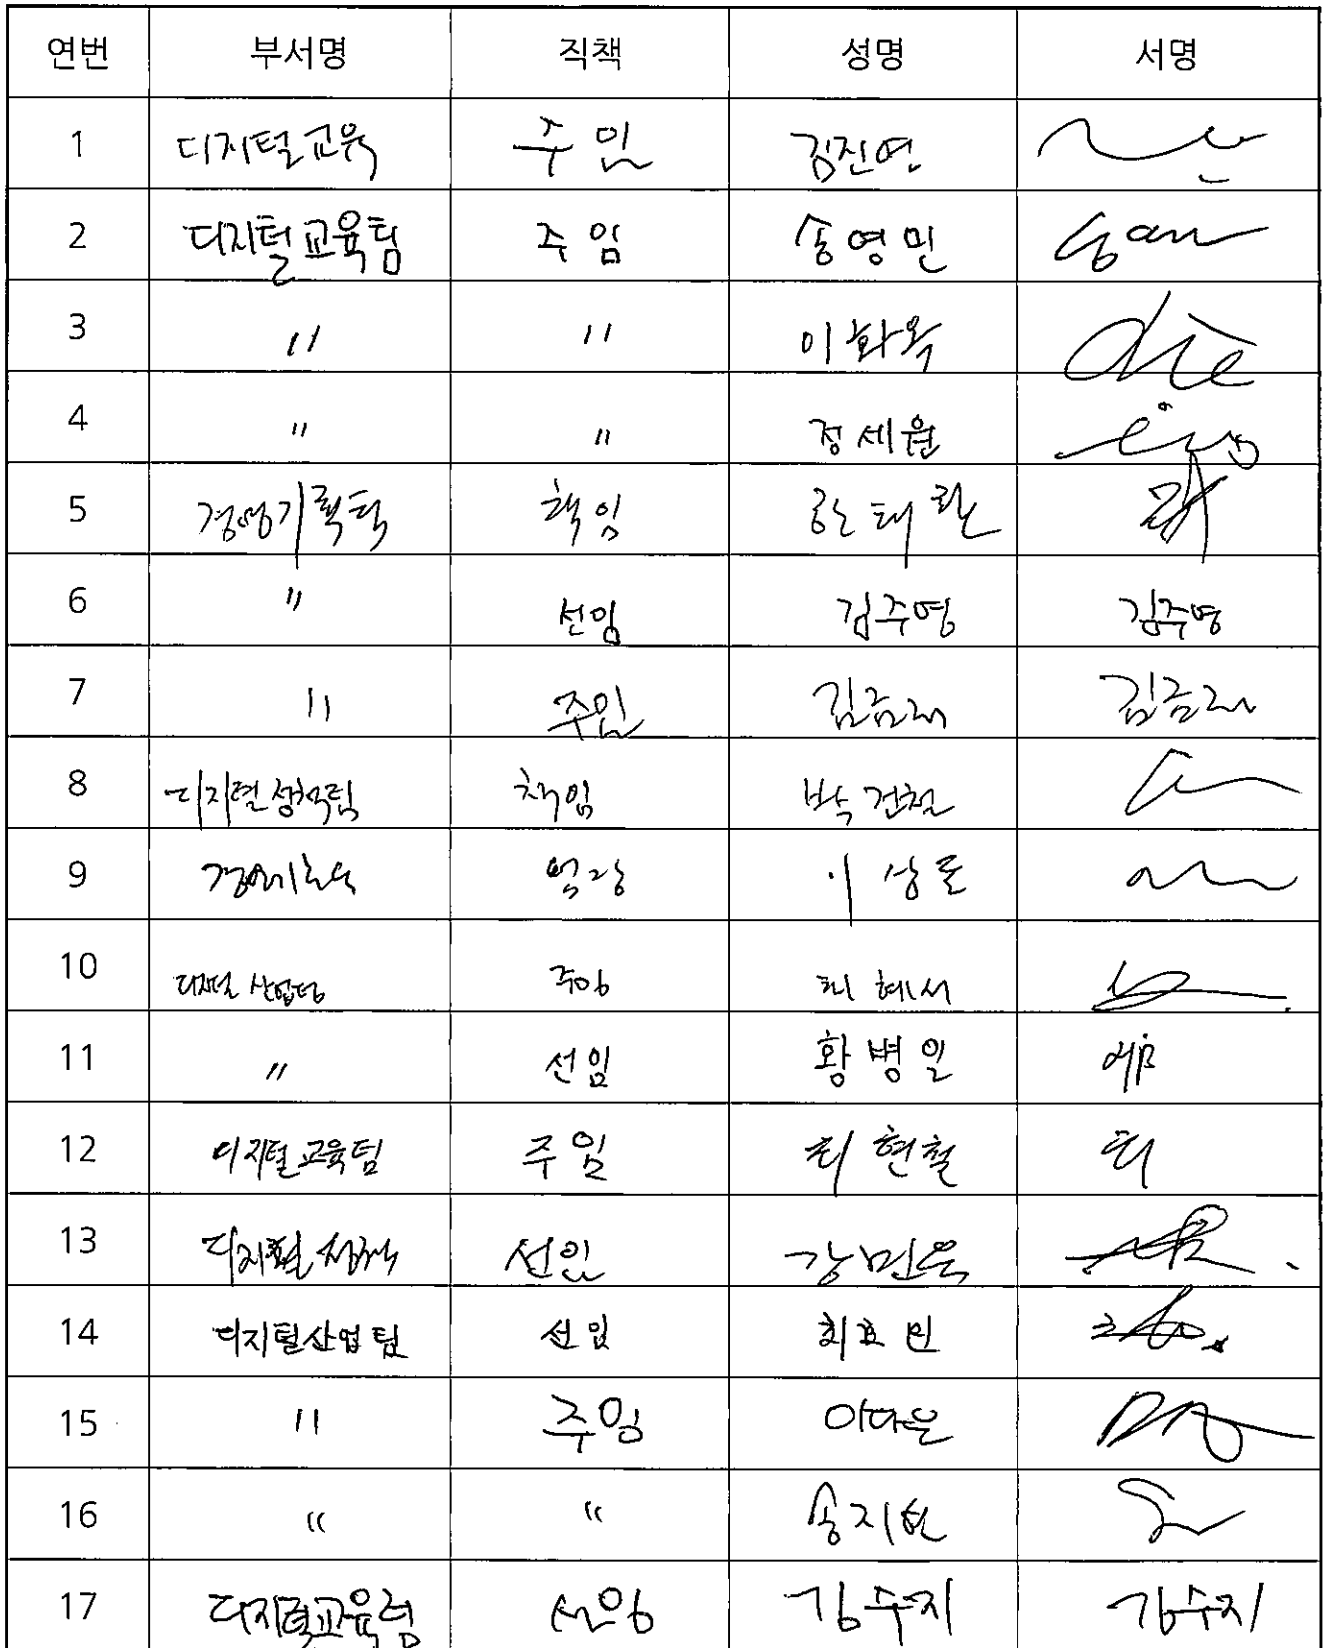 연번 부서명 직책 성명 서명
1 디지털교육 주임 김진연
2 디지털교육팀 주임 송영민
3 〃 〃 이화옥
4 〃 〃 정세원
5 경영기획팀 책임 한태환
6 〃 선임 김주영 김주영
7 〃 주임 김금래 김금래
8 디지털정책팀 책임 박건철
9 이상돈
10 디지털산업팀 주임 최혜서
11 〃 선임 황병일
12 디지털교육팀 주임 최현철 최
13 디지털정책 선임 강민욱
14 디지털산업팀 선임 최효민
15 〃 주임 이다은
16 〃 〃 송지현
17 디지털교육팀 선임 김수지 김수지